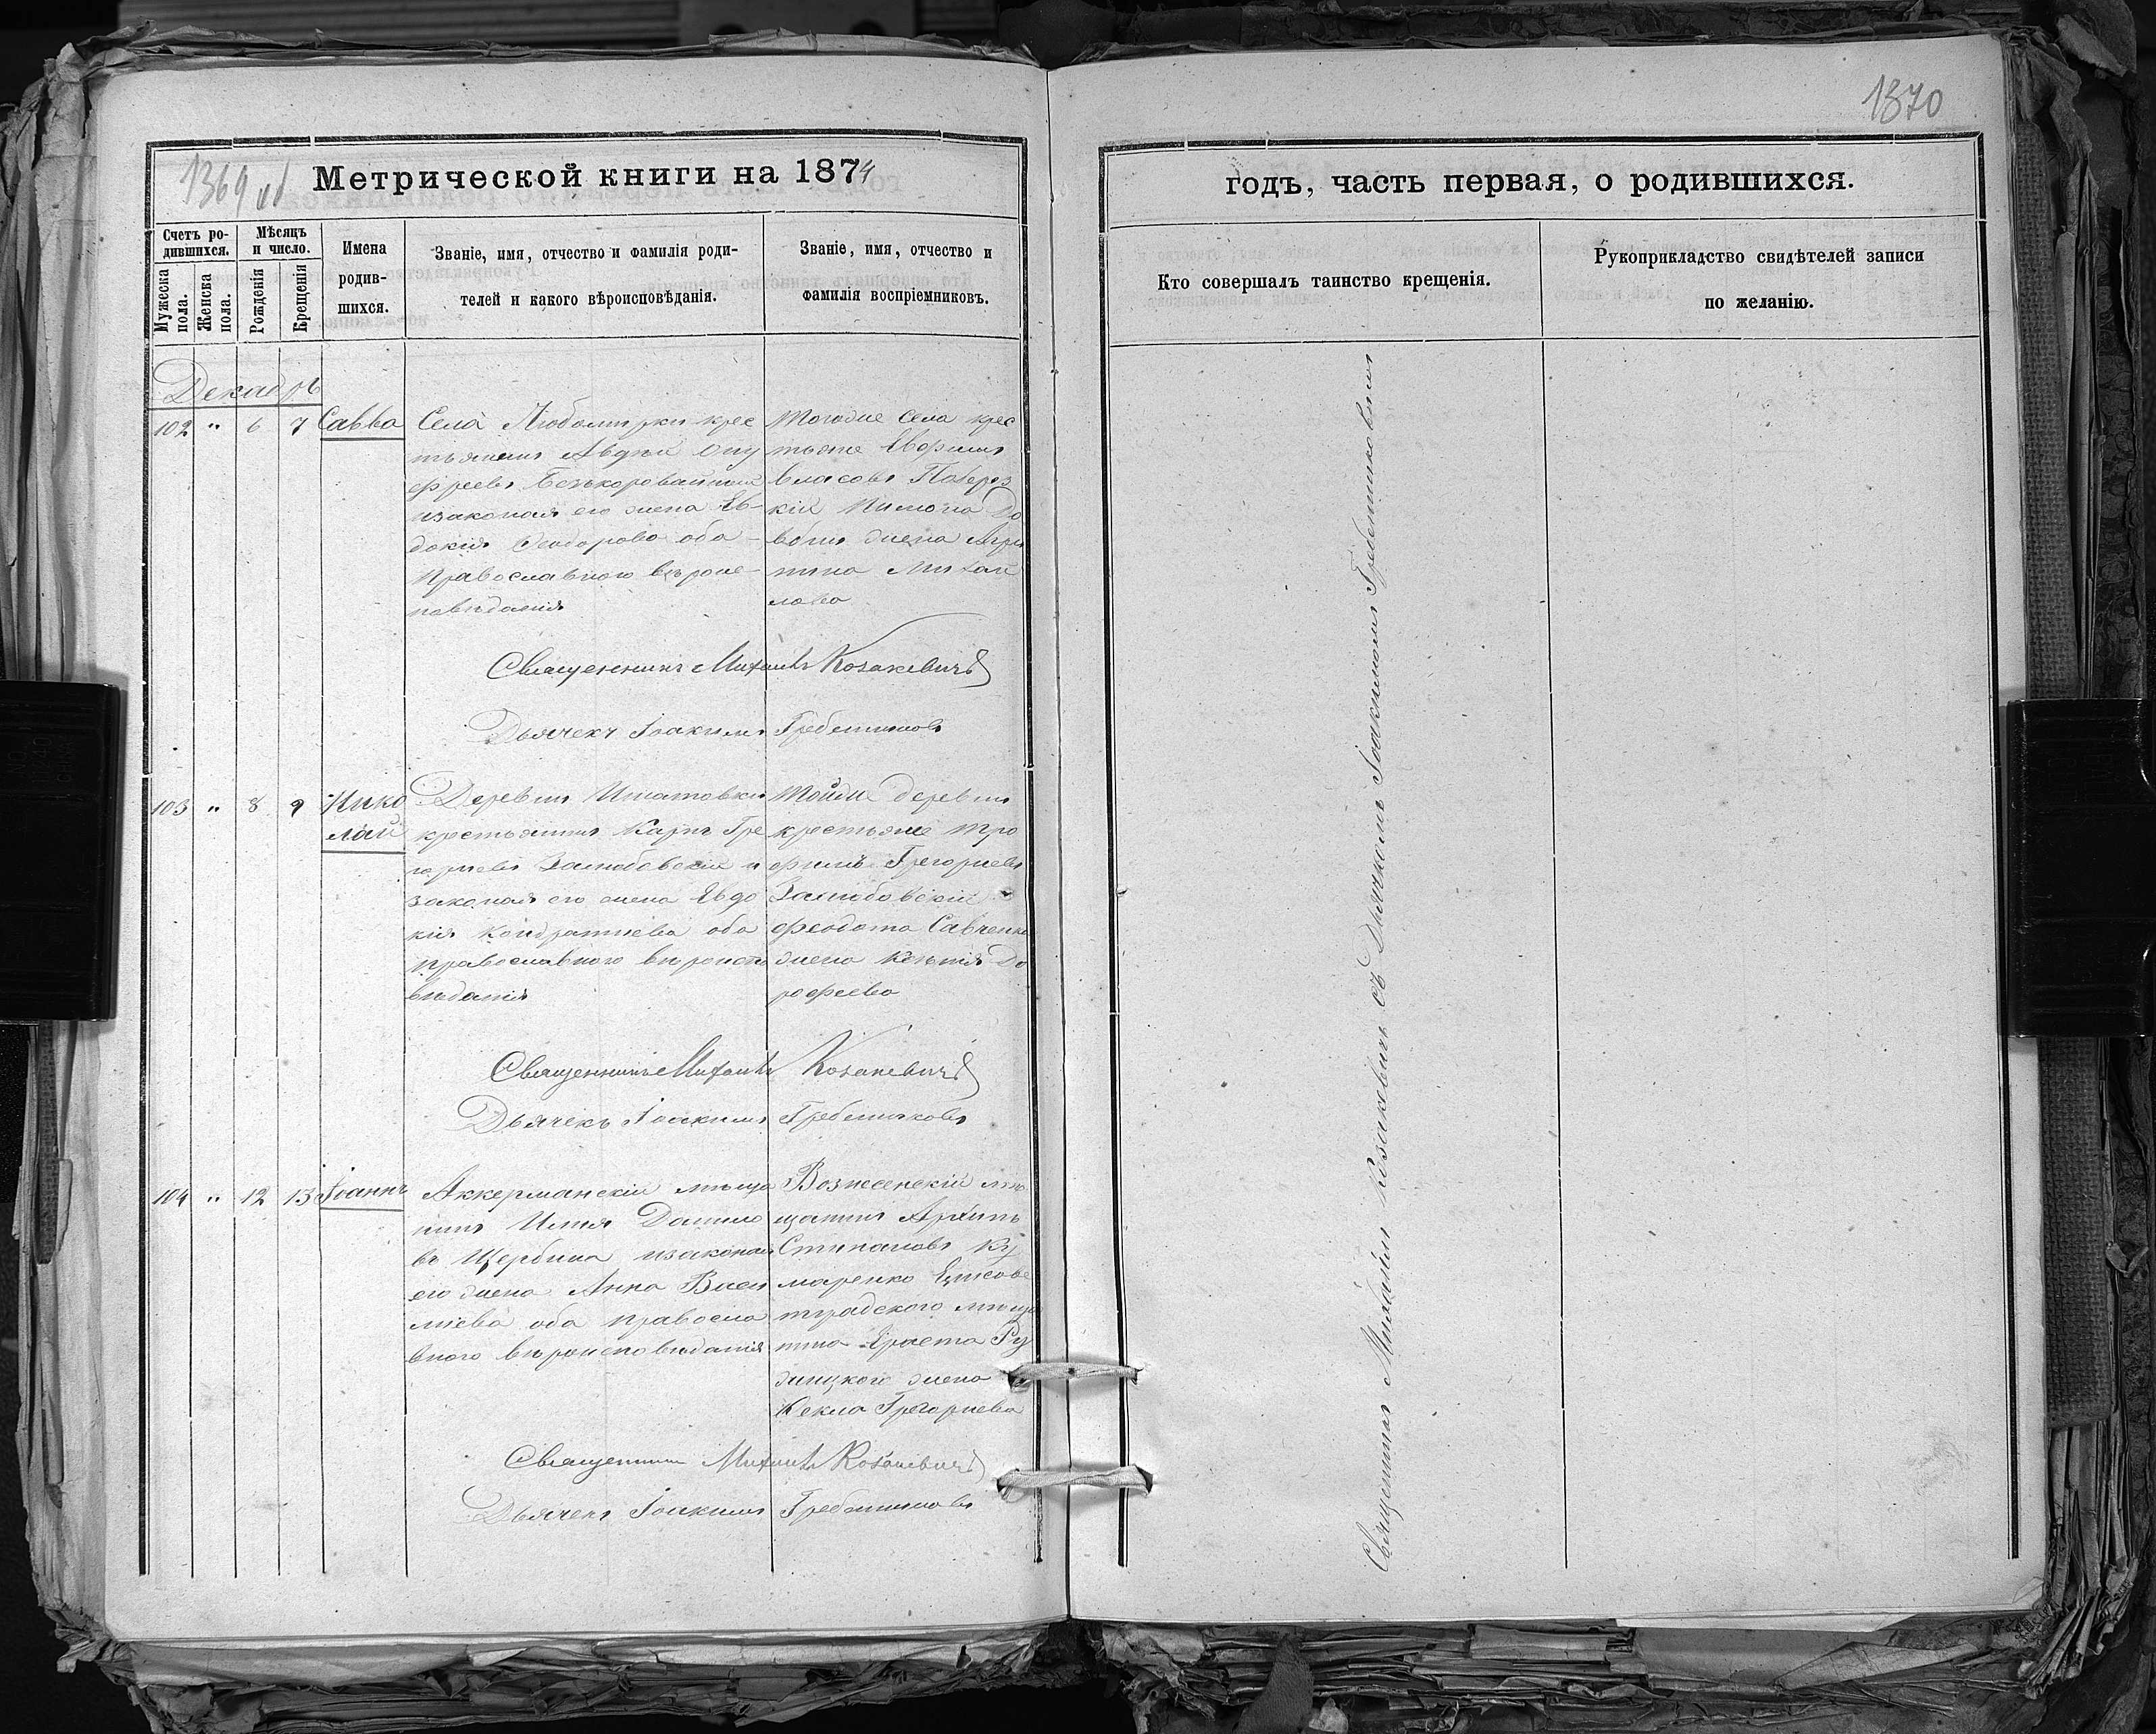 1369 об
Метрической книги на 1874
Счетъ ро-
дившихся.
Мужеска пола.
Женска пола.
Мѣсяцъ
и число.
Рожденія
Крещенія
Имена
родив-
шихся.
Званіе, имя, отчество и фамилія роди-
телей и какого вѣроисповѣданія.
Званіе, имя, отчество и
фамилія воспріемниковъ.
Декабрь
102 " 6 7 Савва
Села Любомирки крес
тьянинъ Авдѣй Ону
фріевъ Безкоровайный
и законая его жена Ев-
докія Феодорова оба
Православного вѣроис-
повѣданія
Тогоже Села крес
тьяне
Власовъ
кій До
жена Агри
пина Михай
лова
Священникъ Михаилъ Козакевичъ
Дьячекъ Іоакимъ Гребенниковъ
103 " 8 9 Нико
лай
Деревни Игнатовки
крестьянинъ Карпъ Гри
горіевъ и
законая его жена Евдо
кія Кондратіева оба
православного вѣроиспо
вѣданія
Тойже деревни
крестьяне Тро
фимъ Григоріевъ
Феодота Савченко
жена До
рофеева
Священникъ Михаилъ Козакевичъ
Дьячекъ Іоакимъ Гребенниковъ
104 " 12 13 Іоаннъ
Аккерманскій мѣща
нинъ Илія Данило
въ Щербина и законая
его жена Анна Васи
ліева оба правосла
вного вѣроисповѣданія
Вознесенскій мѣ
щанинъ Архипъ
Стипановъ Ку
маренко Елисове
тградского мѣща
нина Ераста
жена
Фекла Григориева
Священникъ Михаилъ Козакевичъ
Дьячекъ Іоакимъ Гребенниковъ
1370
годъ, часть первая, о родившихся.
Кто совершалъ таинство крещенія.
Рукоприкладство свидѣтелей записи
по желанію.
Священникъ Михаилъ Козакевичъ съ Дьячкомъ Іоакимомъ Гребенниковымъ